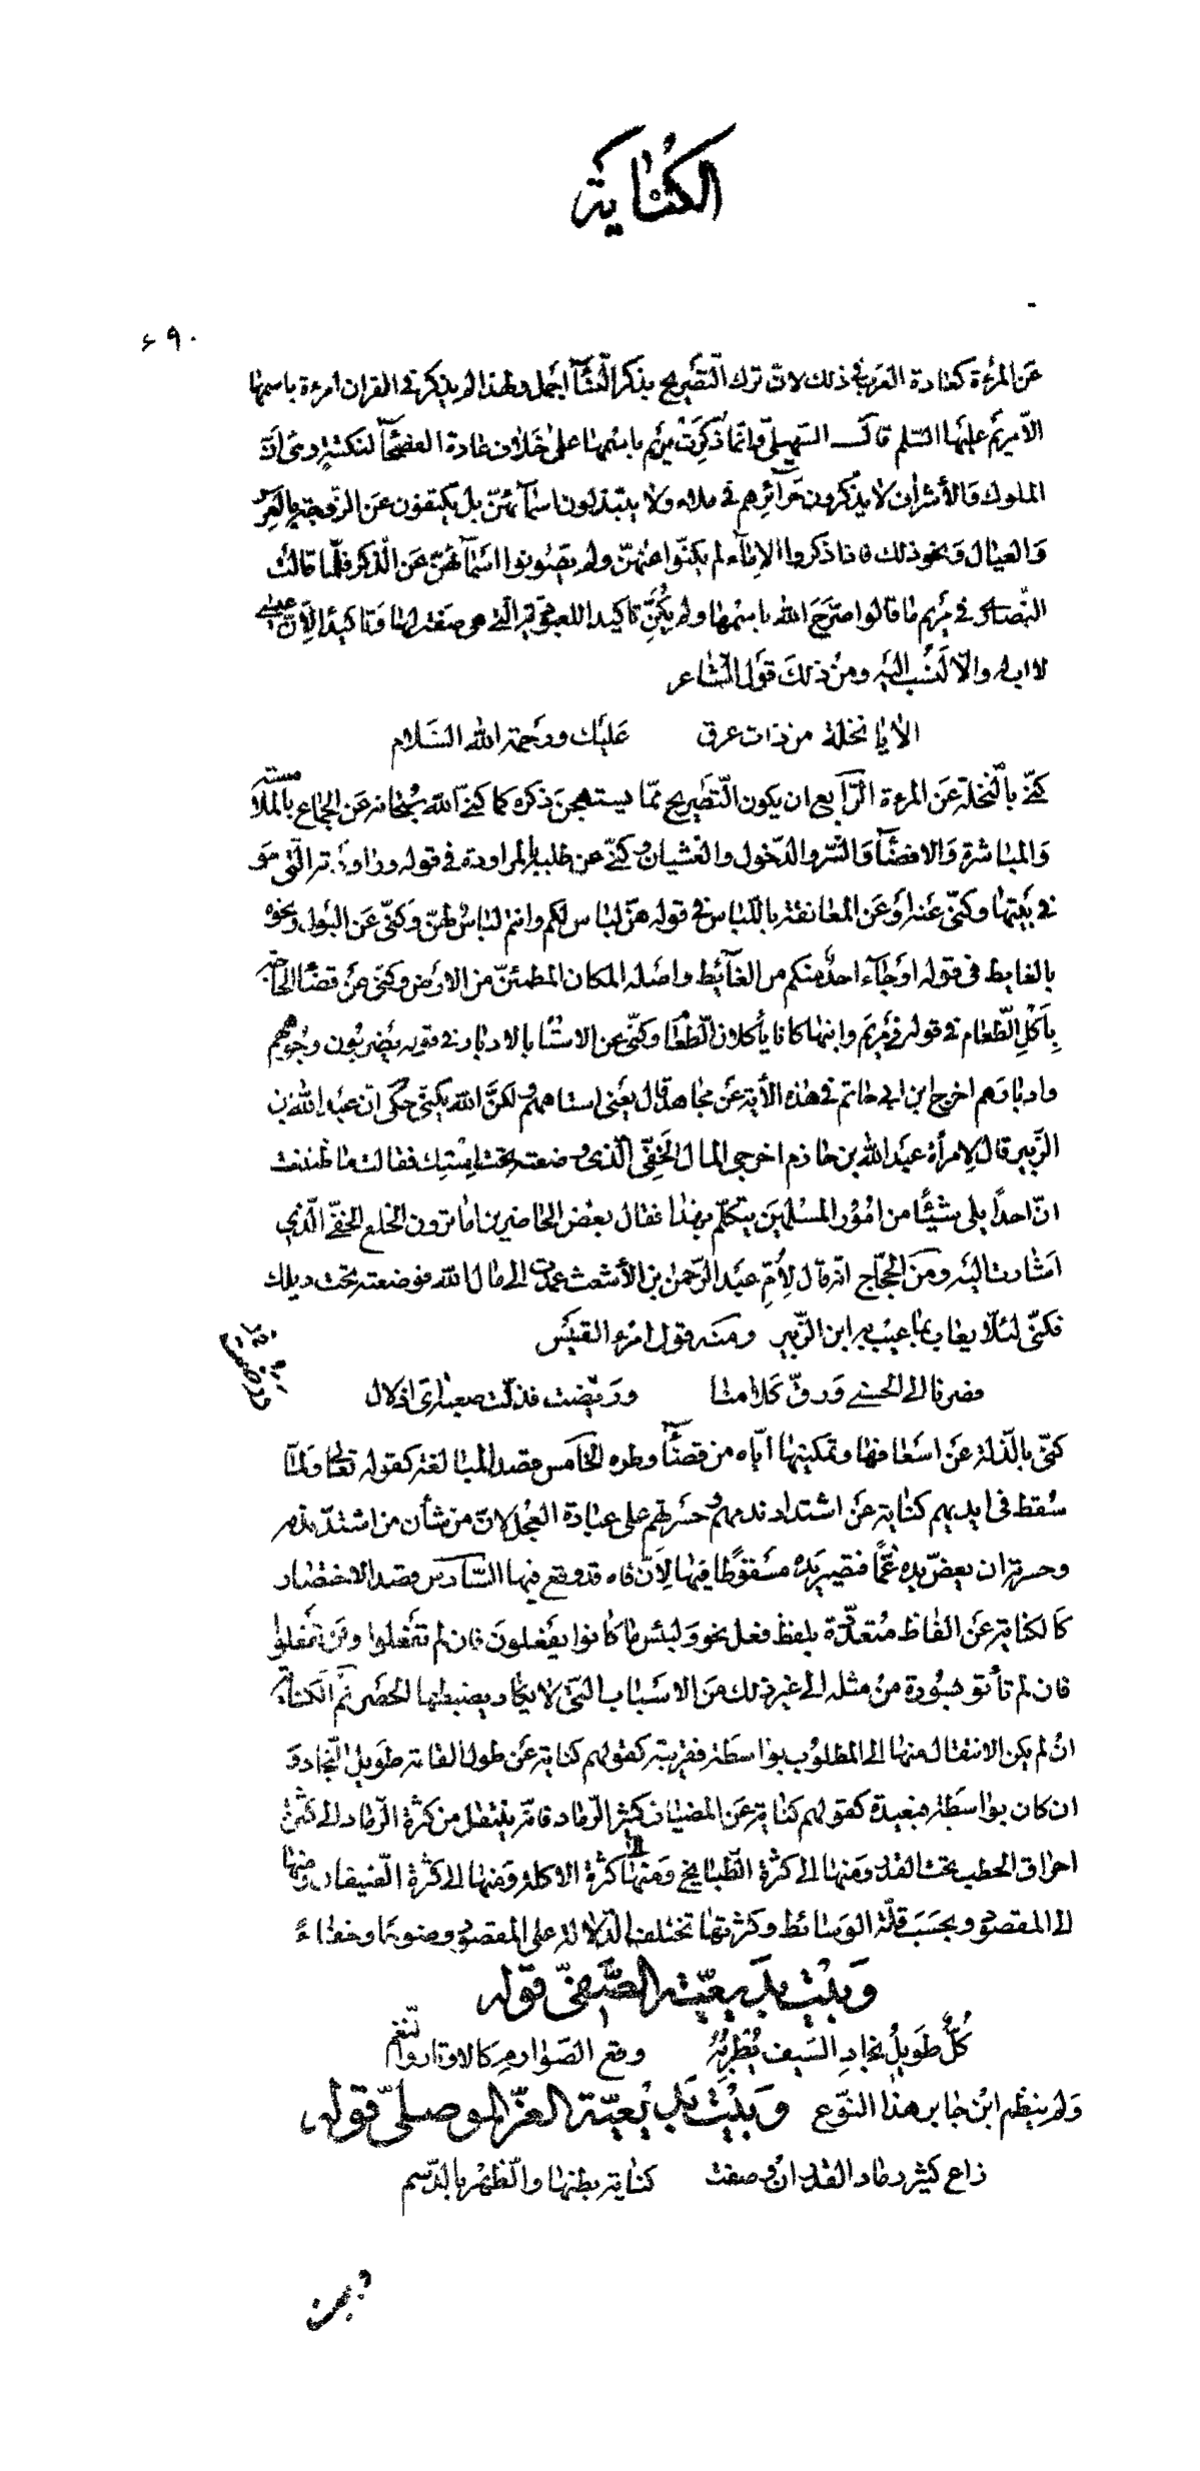 الكناية
٦٩٠
عن المرءة كعادة العرب في ذلك لان ترك التصريح بذكر النسآء اجمل ولهذا لم يذكر في القران امرءة باسمها
الا مريم عليها السلم قال السهيلي وانما ذكرت مريم باسمها على خلاف عادة الفصحآء لنكتة وهي ان
الملوك والأشراف لا يذكرون حرآئرهم في ملاء ولا يبتذلون اسمآئهن بل يكنون عن الزوجة بالعرس
والعيال ونحو ذلك فاذا ذكروا الامآء لم يكنوا عنهن ولم يصونوا اسمآئهن عن الذكر فلما قالت
النصارى في مريم ما قالوا صرح الله باسمها ولم يكن تاكيدا للعبودية التي هي صفة لها وتاكيدا لان عيسى
لا اب له والا لنسب اليه ومن ذلك قول الشاعر
الا يا نخلة من ذات عرق عليك ورحمة الله السلام
كنى بالنخلة عن المرءة الرابع ان يكون التصريح مما يستهجن ذكره كما كنى الله سبحانه عن الجماع بالملامسة
والمباشرة والافضآء والسر والدخول والغشيان وكنى عن طلبه بالمراودة في قوله وراودته التي هو
في بيتها وكنى عنه او عن المعانقة باللباس في قوله هن لباس لكم وانتم لباس لهن وكنى عن البول ونحوه
بالغايط في قوله او جآء احد منكم من الغآئط واصله المكان المطمئن من الارض وكنى عن قضآء الحاجة
باكل الطعام في قوله في مريم وابنها كانا يأكلان الطعام وكنى عن الاستاه بالادبار في قوله يضربون وجوههم
وادبارهم اخرج ابن ابي حاتم في هذه الأية عن مجاهد قال يعني استاههم ولكن الله يكني حكى ان عبد الله بن
الزبير قال لامرأة عبد الله بن خازم اخرجي المال الخفي الذي وضعته تحت استك فقالت ما ظننت
ان احدا يلي شيئا من امور المسلمين يتكلم بهذا فقال بعض الحاضرين اما ترون الخلع الخفي الذي
اشارت اليه ومن الحجاج انه قال لأم عبد الرحمن بن الأشعث عمدت الى مال الله فوضعته تحت ذيلك
فكنى لئلا يعاب بما عيب به ابن الزبير ومنه قول امرء القيس
فصرنا الى الحسنى ورق كلامنا ورضيت فذلت صعبة اي اذلال
كنى بالذلة عن اسعافها وتمكينها اياه من قضآء وطره الخامس قصد المبالغة كقوله تعالى ولما
سقط في ايديهم كناية عن اشتداد ندمهم وحسرتهم على عبادة العجل لان من شأن من اشتد ندمه
وحسرته ان يعض يده غما فتصير يده مسقوطا فيها لان فاه قد وقع فيها السادس قصد الاختصار
كالكناية عن الفاظ متعددة بلفظ فعل نحو ولبئس ما كانوا يفعلون فان لم تفعلوا ولن تفعلوا
فان لم تأتو بسورة من مثله الى غير ذلك من الاسباب التي لا يكاد يضبطها الحصر ثم الكناية
ان لم يكن الانتقال منها الى المطلوب بواسطة فقريبة كقولهم كناية عن طول القامة طويل النجاد و
ان كان بواسطة فبعيدة كقولهم كناية عن المضياف كثير الرماد فانه ينتقل من كثرة الرماد الى كثرة
احراق الحطب تحت القدر ومنها الى كثرة الطبايخ ومنها الى كثرة الاكلة ومنها الى كثرة الضيفان ومنها
الى المقصود وبحسب قلة الوسائط وكثرتها تختلف الدلالة على المقصود وضوحا وخفاء
وبيت بديعية الصفي قوله
كل طويل نجاد السيف يطربه وقع الصوارم كالاوتار والنغم
ولم ينظم ابن جابر هذا النوع وبيت بديعية العز الموصلي قوله
داع كثير رماد القدر ان وصفت كناية بطنها والظهر بالدسم